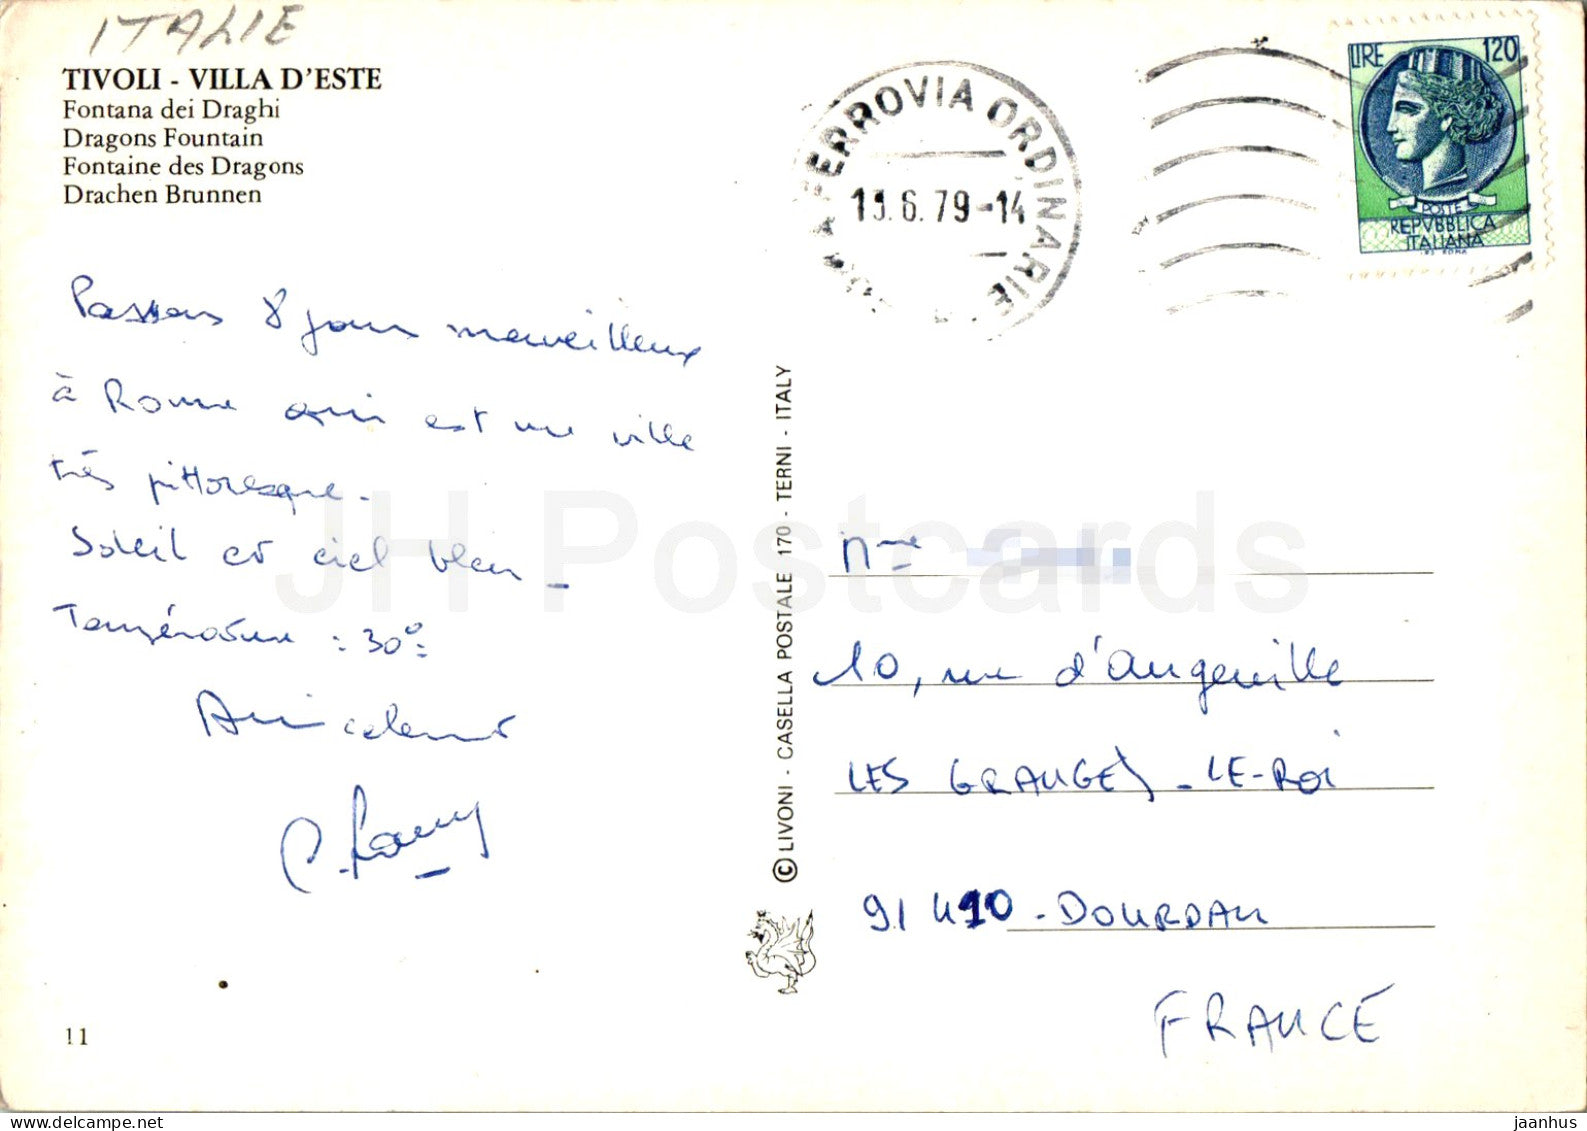 ITALIE
TIVOLI - VILLA D'ESTE
Fontana dei Draghi
Dragons Fountain
Fontaine des Dragons
Drachen Brunnen
A FERROVIA ORDINARIE
6.79-14
LIRE 120
POSTE
REPVBBLICA
ITALIANA
Passons 8 jours merveilleux
à Rome qui est une ville
très pittoresque.
Soleil et ciel bleu -
Température : 30°.
Amicalement
© LIVONI - CASELLA POSTALE 170 - TERNI - ITALY
Mme
10, rue d'Angerville
LES GRANGES-LE-ROI
91410 - DOURDAN
FRANCE
11
JH Postcards
jaanhus @ delcampe.net